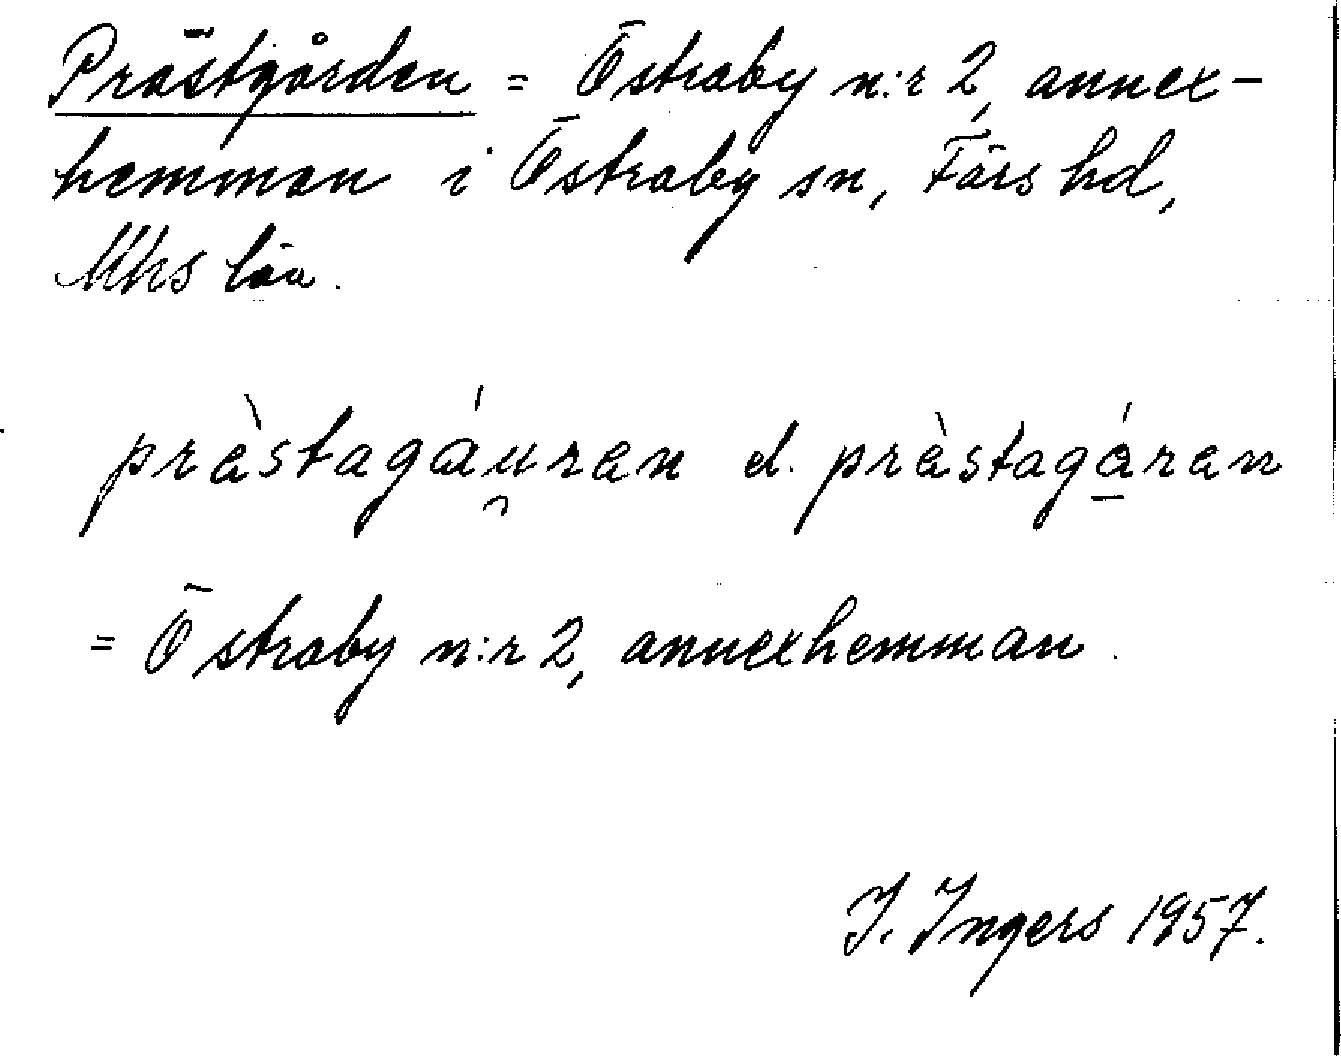 Prästgården = Östraby n:r 2, annex-
hemman i Östraby sn, Färs hd,
Mhs län.
pràstagáu̯ran el. pràstagá̱ran
= Östraby n:r 2, annexhemman.
I. Ingers 1957.